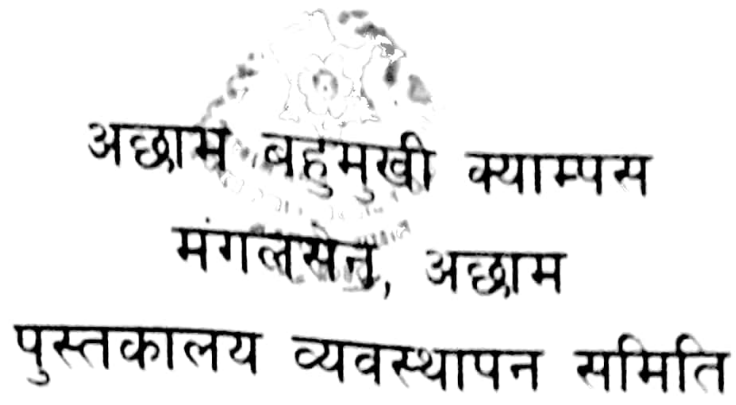 अछाम बहुमुखी क्याम्पस
मंगलसेन, अछाम
पुस्तकालय व्यवस्थापन समिति